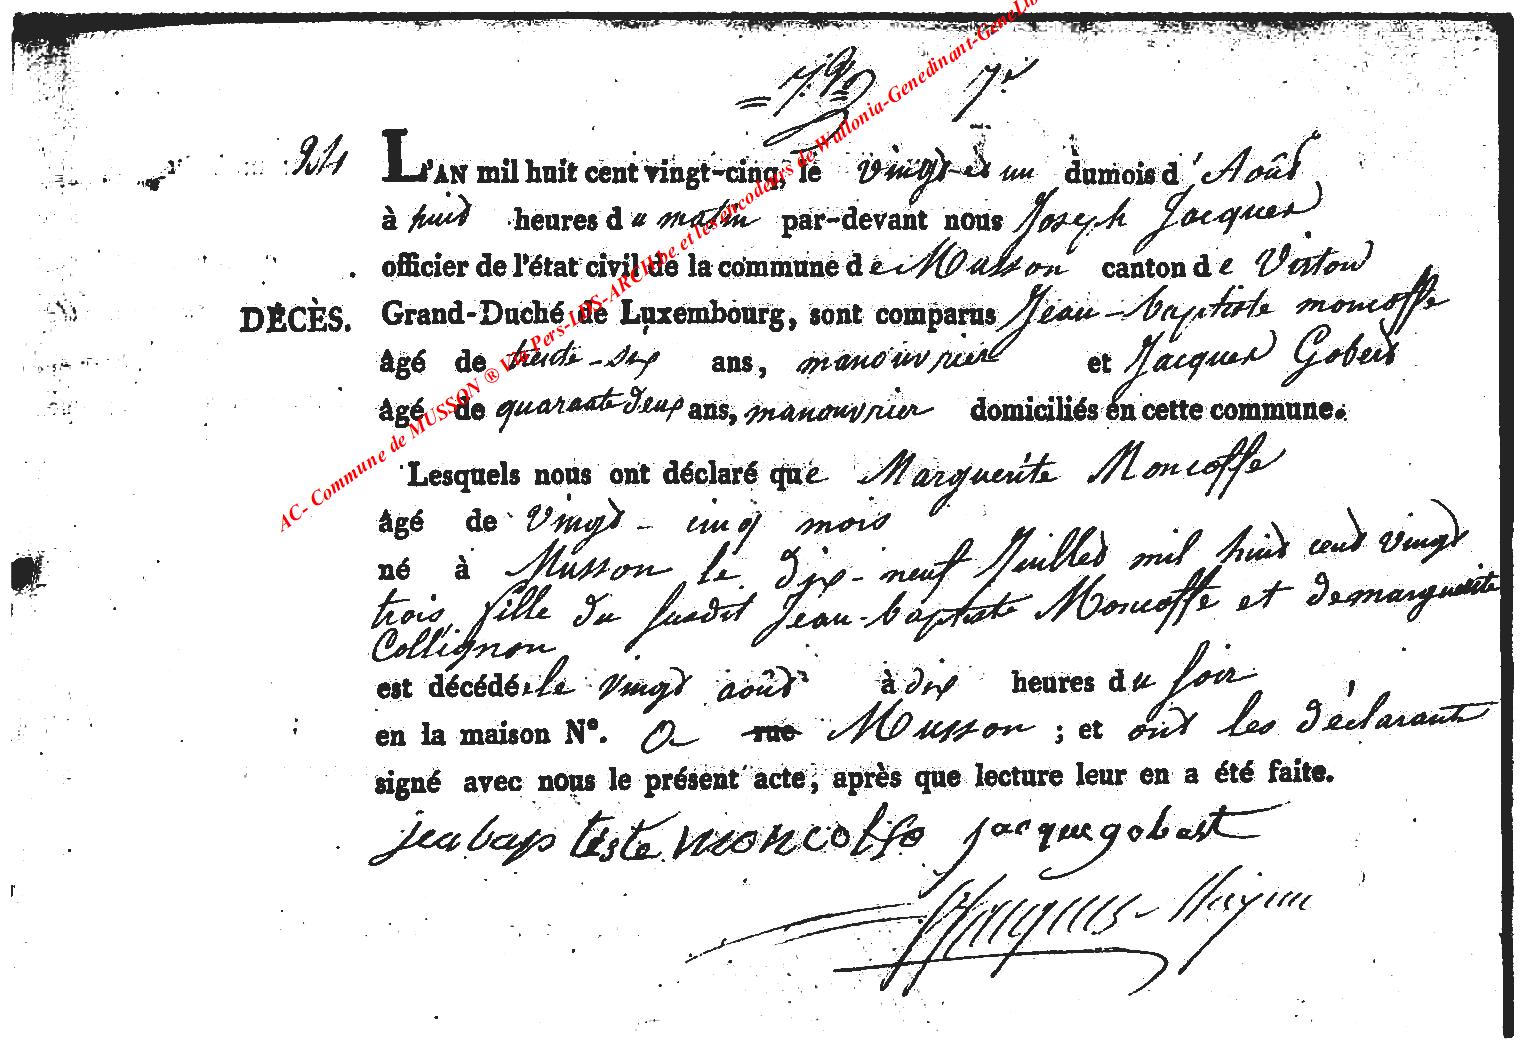 24 L'AN mil huit cent vingt-cinq, le vingt et un du mois d'Août
à huit heures du matin par-devant nous Joseph Jacques
officier de l'état civil de la commune de Musson canton de Virton
DÉCÈS. Grand-Duché de Luxembourg, sont comparus Jean-baptiste moncoffe
âgé de trente-six ans, manouvrier et Jacques Gobert
âgé de quarante deux ans, manouvrier domiciliés en cette commune.
Lesquels nous ont déclaré que Marguerite Moncoffe
âgé de vingt-cinq mois
né à Musson le dix-neuf Juillet mil huit cent vingt
trois, fille du susdit Jean-baptiste Moncoffe et de marguerite
Collignon
est décédé le vingt août à dix heures du soir
en la maison N°. 0 rue Musson ; et ont les déclarants
signé avec nous le présent acte, après que lecture leur en a été faite.
jea bap tiste moncoffe jacque gobert
AC- Commune de MUSSON ® Via Pers-LDS-ARCH.be et les encodeurs de Wallonia-Genedinant-GeneLib